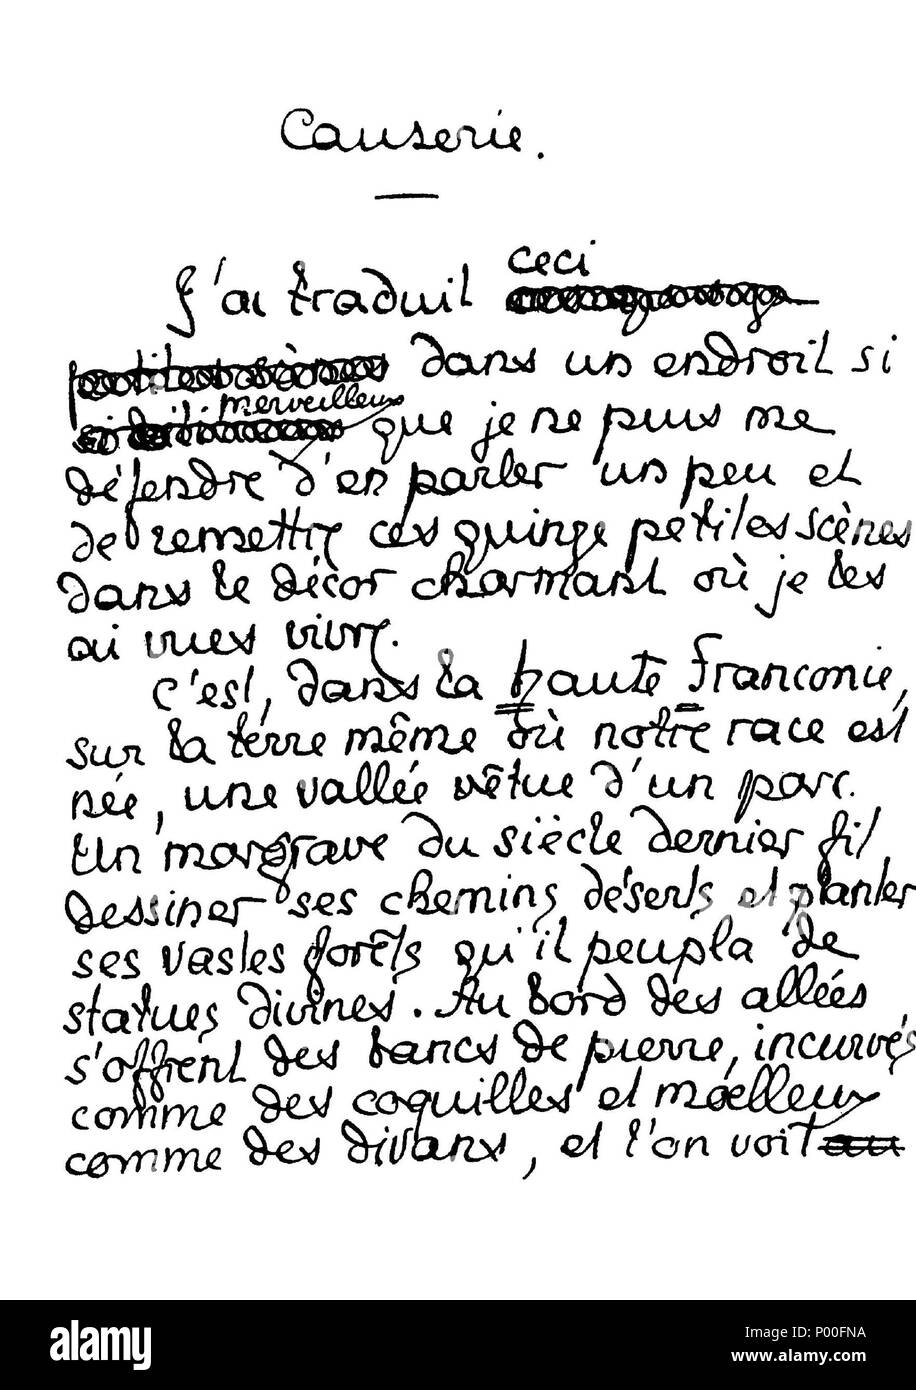 Causerie.
J'ai traduit ceci
dans un endroit si
merveilleux
que je ne puis me
défendre d'en parler un peu et
de remettre ces quinze petites scènes
dans le décor charmant où je les
ai vues vivre.
C'est, dans la haute Franconie,
sur la terre même où notre race est
née, une vallée vêtue d'un parc.
Un margrave du siècle dernier fit
dessiner ses chemins déserts et planter
ses vastes forêts qu'il peupla de
statues divines. Au bord des allées
s'offrent des bancs de pierre, incurvés
comme des coquilles et moëlleux
comme des divans, et l'on voit au
alamy
Image ID: P00FNA
www.alamy.com